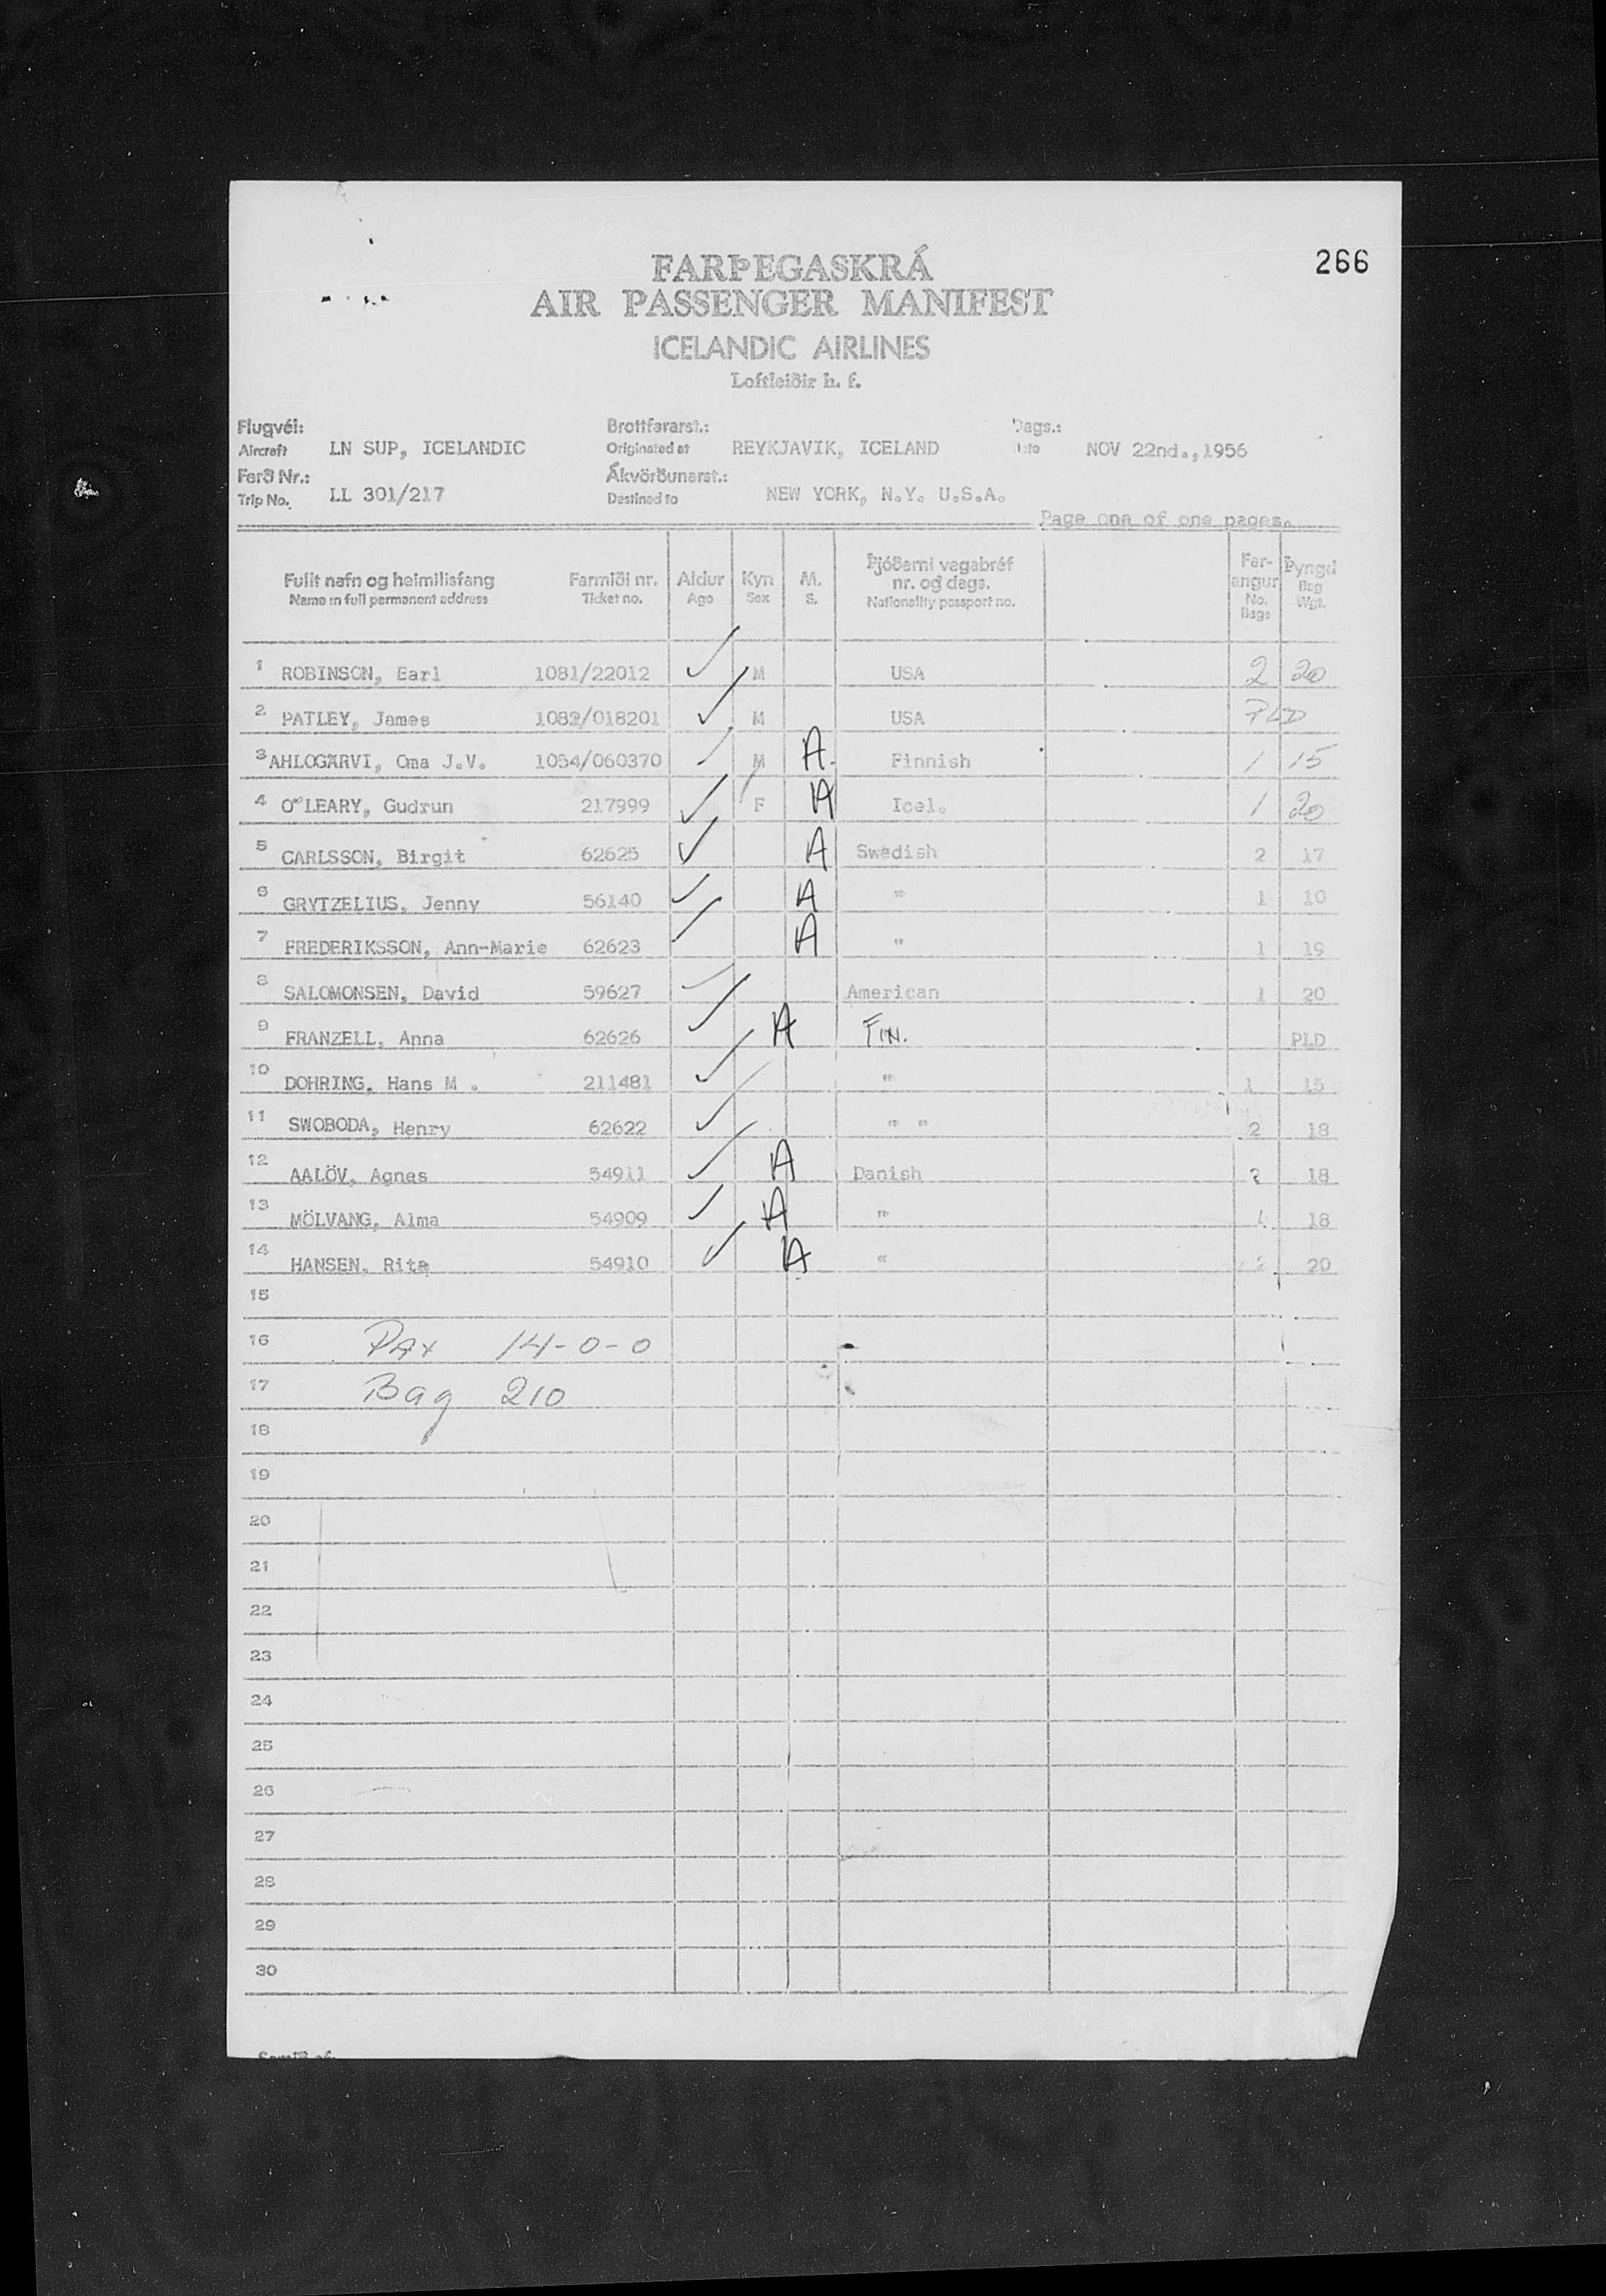 266
FARÞEGASKRÁ
AIR PASSENGER MANIFEST
ICELANDIC AIRLINES
Loftleiðir h. f.
Flugvél: Brottfararst.: Dags.:
Aircraft LN SUP, ICELANDIC Originated at REYKJAVIK, ICELAND NOV 22nd.,1956
Ferð Nr.: Ákvörðunarst.:
Trip No. LL 301/217 Destined to NEW YORK, N.Y. U.S.A.
Page one of one pages.
Fullt nafn og heimilisfang Farmiði nr. Aldur Kyn M. Þjóðerni vegabréf Far- Þyngd
Name in full permanent address Ticket no. Age Sex S. nr. og dags. angur Bag
Nationality passport no. No. Wgt.
Bags
1 ROBINSON, Earl 1081/22012 ✓ M USA 2 20
2 PATLEY, James 1082/018201 ✓ M USA PLD
3 AHLOGÄRVI, Oma J.V. 1054/060370 ✓ M A Finnish 1 15
4 O"LEARY, Gudrun 217999 ✓ F A Icel. 1 20
5 CARLSSON, Birgit 62625 ✓ A Swedish 2 17
6 GRYTZELIUS, Jenny 56140 ✓ A " 1 10
7 FREDERIKSSON, Ann-Marie 62623 ✓ A " 1 19
8 SALOMONSEN, David 59627 ✓ American 1 20
9 FRANZELL, Anna 62626 ✓ A FIN. PLD
10 DOHRING, Hans M . 211481 ✓ " 1 15
11 SWOBODA, Henry 62622 ✓ " " 2 18
12 AALÖV, Agnes 54911 ✓ A Danish 2 18
13 MÖLVANG, Alma 54909 ✓ A " 18
14 HANSEN, Rita 54910 ✓ A " 2 20
15
16 Pax 14-0-0
17 Bag 210
18
19
20
21
22
23
24
25
26
27
28
29
30